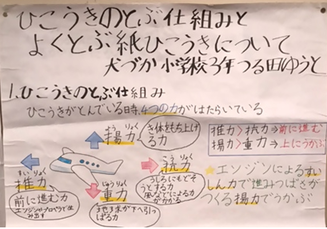 ひこうきのとぶ仕組みと
よくとぶ紙ひこうきについて
犬づか小学校3年つる田ゆうと
1.ひこうきのとぶ仕組み
ひこうきがとんでいる時、4つの力がはたらいている
ようりょく
揚力
き体を持ち上げる力
推力>抗力→前に進む
揚力>重力→上にうかぶ
すいりょく
推力
前に進む力
じゅうりょく
重力
こうりょく
抗力
うしろにもどそうとする力
エンジンによるすい
しん力で進みつばさが
つくる揚力でうかぶ